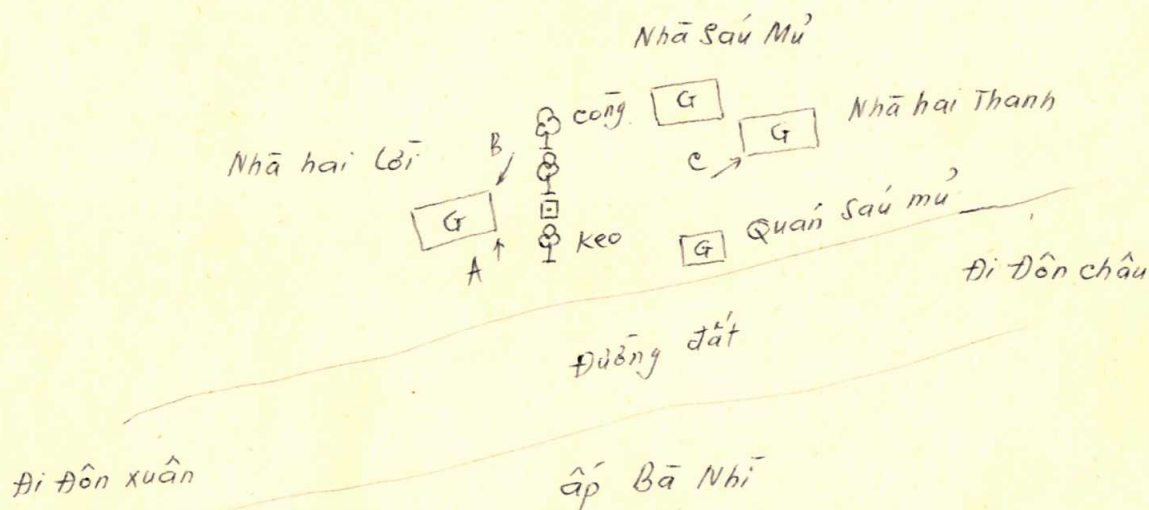 Nhà Sáu Mủ
còng
G
Nhà hai Thanh
G
B
C
Nhà hai Lời
G
Quán Sáu mủ
keo
G
A
Đi Đôn châu
Đường đất
Đi Đôn xuân
ấp Bà Nhì